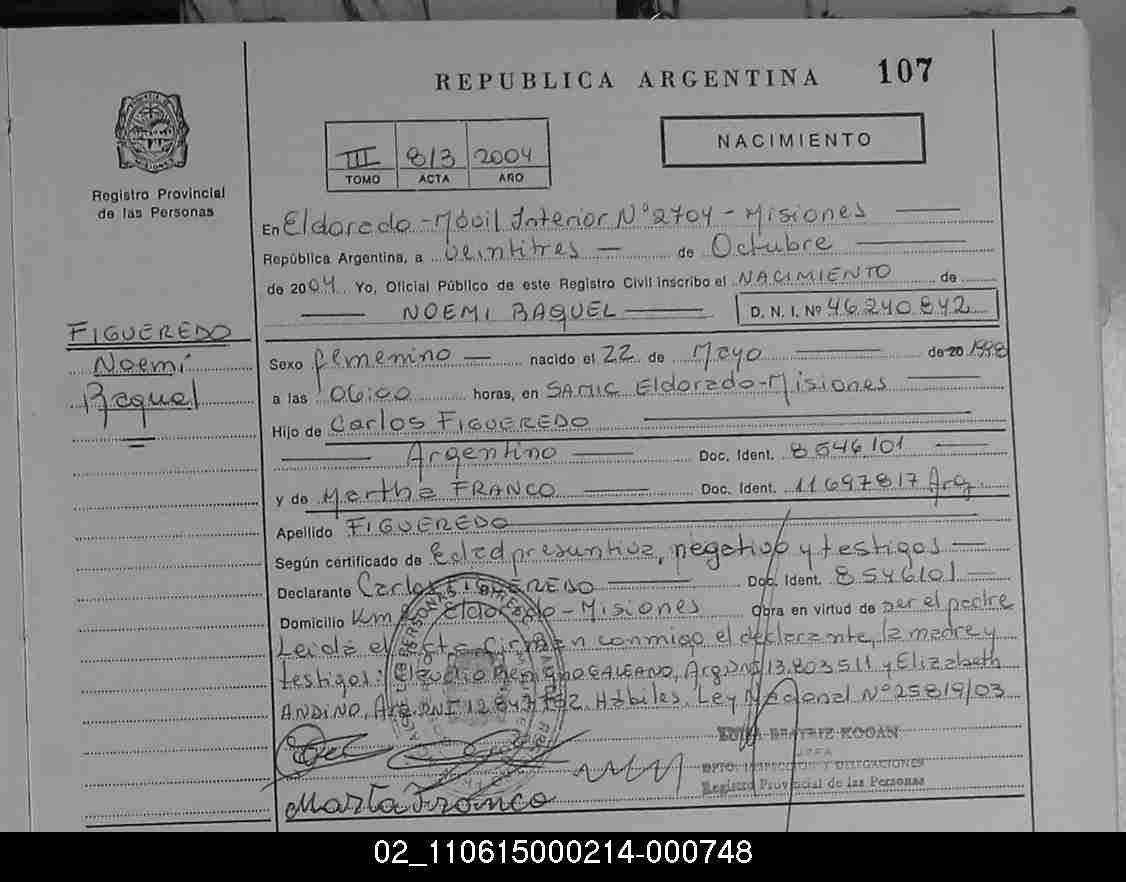 REPUBLICA ARGENTINA 107
NACIMIENTO
III 813 2004
TOMO ACTA AÑO
Registro Provincial
de las Personas
En Eldorado - Móvil Interior Nº 2704 - Misiones
República Argentina, a veintitres de Octubre
de 2004 Yo, Oficial Público de este Registro Civil inscribo el NACIMIENTO de
NOEMI RAQUEL D. N. I. Nº 46.240.842
FIGUEREDO
Noemí
Raquel
Sexo femenino nacido el 22 de Mayo de 20 1998
a las 06:00 horas, en SAMIC Eldorado - Misiones
Hijo de Carlos FIGUEREDO
Argentino Doc. Ident. 8546101
y de Martha FRANCO Doc. Ident. 11697817 Arg.
Apellido FIGUEREDO
Según certificado de Edad presuntiva, negativo y testigos
Declarante Carlos FIGUEREDO Doc. Ident. 8546101
Domicilio Km Eldorado - Misiones Obra en virtud de ser el padre
Leída el acta firman conmigo el declarante, la madre y
testigos: Claudio GALEANO, Arg. DNI 13.803.511 y Elizabeth
ANDINO, Arg. DNI Hábiles. Ley Nacional Nº 25819/03
BEATRIZ KOGAN
DPTO. INSPECCION Y DELEGACIONES
Registro Provincial de las Personas
Marta Franco
02_110615000214-000748